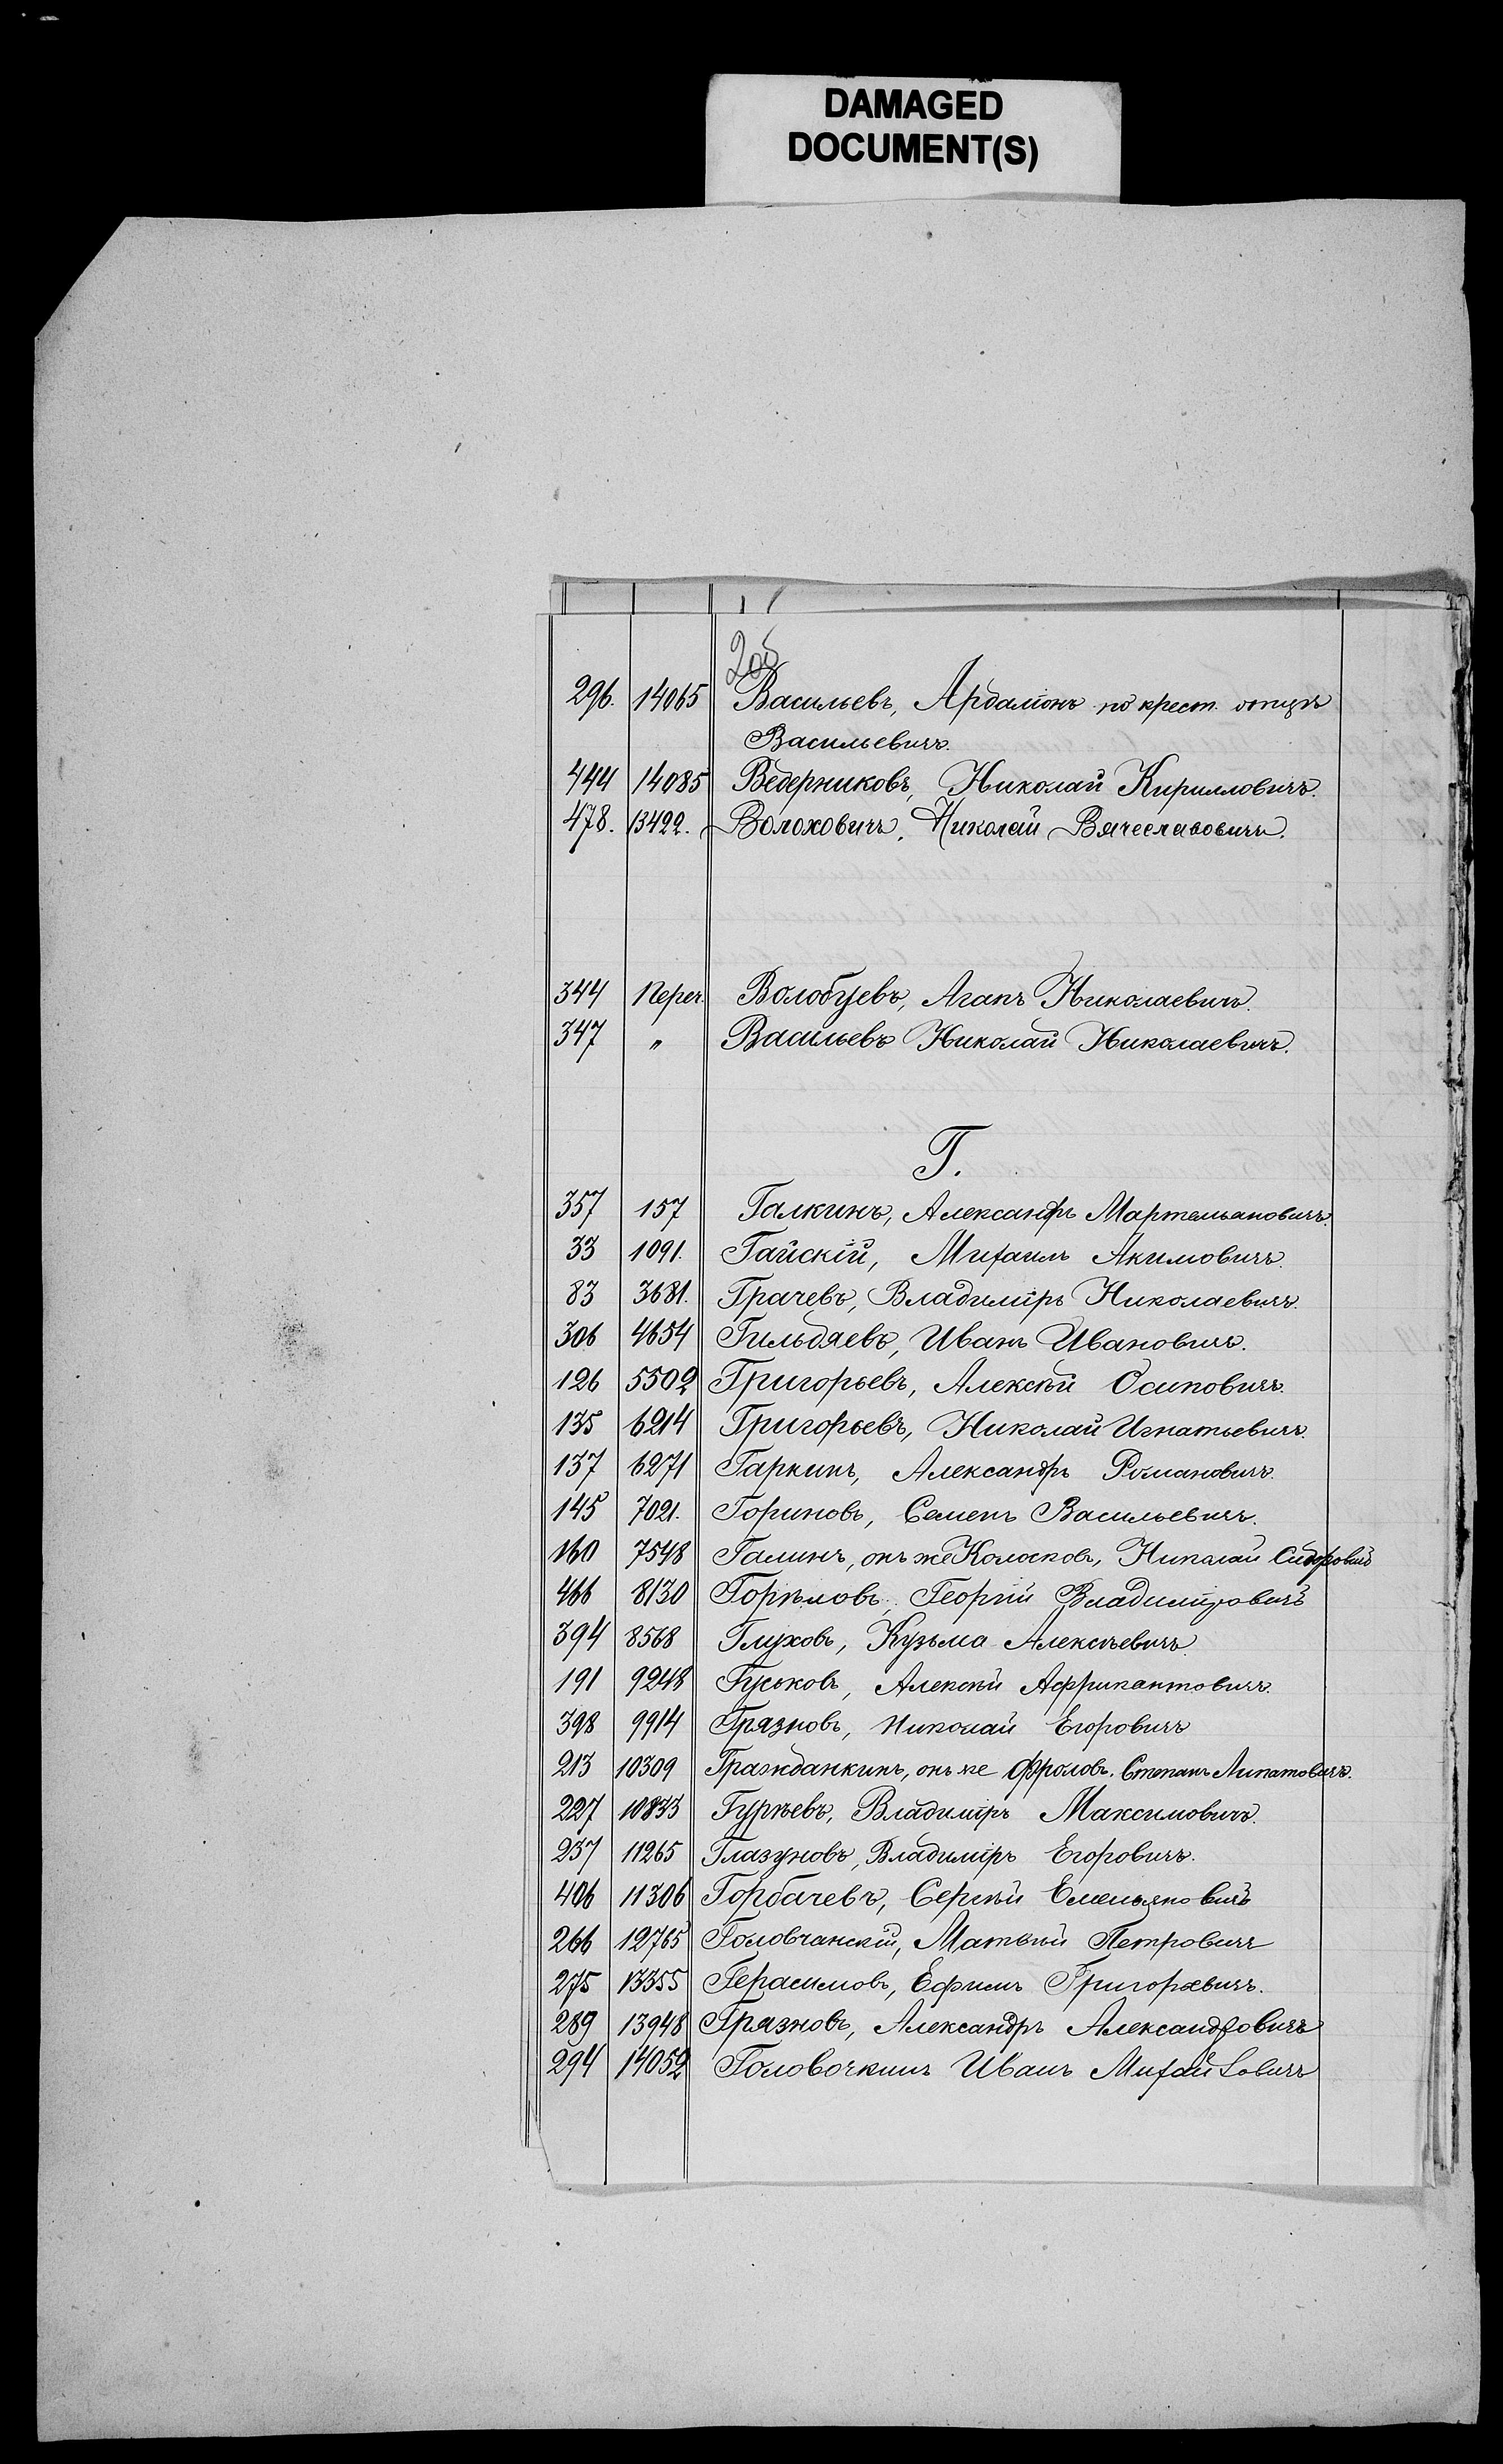 DAMAGED
DOCUMENT(S)
2об
296. 14065 Васильевъ, Ардаліонъ по крест. отцѣ
Васильевичъ.
444 14085 Ведерниковъ, Николай Кирилловичъ.
478. 13422. Волоховичъ, Николай Вячеславовичъ.
344 Переч. Волобуевъ, Агапъ Николаевичъ.
347 " Васильевъ Николай Николаевичъ.
Г.
357 157 Галкинъ, Александръ Мартемьановичъ.
33 1091. Гайскій, Михаилъ Акимовичъ.
83 3681. Грачевъ, Владиміръ Николаевичъ.
306 4654 Гильдяевъ, Иванъ Ивановичъ.
126 5502 Григорьевъ, Алексѣй Осиповичъ.
135 6214 Григорьевъ, Николай Игнатьевичъ.
137 6271 Гаркинъ, Александръ Романовичъ.
145 7021. Гориновъ, Семенъ Васильевичъ.
160 7548 Галинъ, онъ же Колосковъ, Николай Сидоровичъ
466 8130 Горѣловъ, Георгій Владиміровичъ
394 8568 Глуховъ, Кузьма Алексѣевичъ.
191 9248 Гуськовъ, Алексѣй Африкантовичъ.
398 9914 Грязновъ, Николай Егоровичъ
213 10309 Гражданкинъ, онъ же Фроловъ, Степанъ Липатовичъ.
227 10833 Гурѣевъ, Владиміръ Максимовичъ.
237 11265 Глазуновъ, Владиміръ Егоровичъ.
406 11306 Горбачевъ, Сергѣй Емельяновичъ
266 12765 Головчанскій, Матвѣй Петровичъ
275 13355 Герасимовъ, Ефимъ Григорьевичъ.
289 13948 Грязновъ, Александръ Александровичъ
294 14052 Головочкинъ Иванъ Михайловичъ